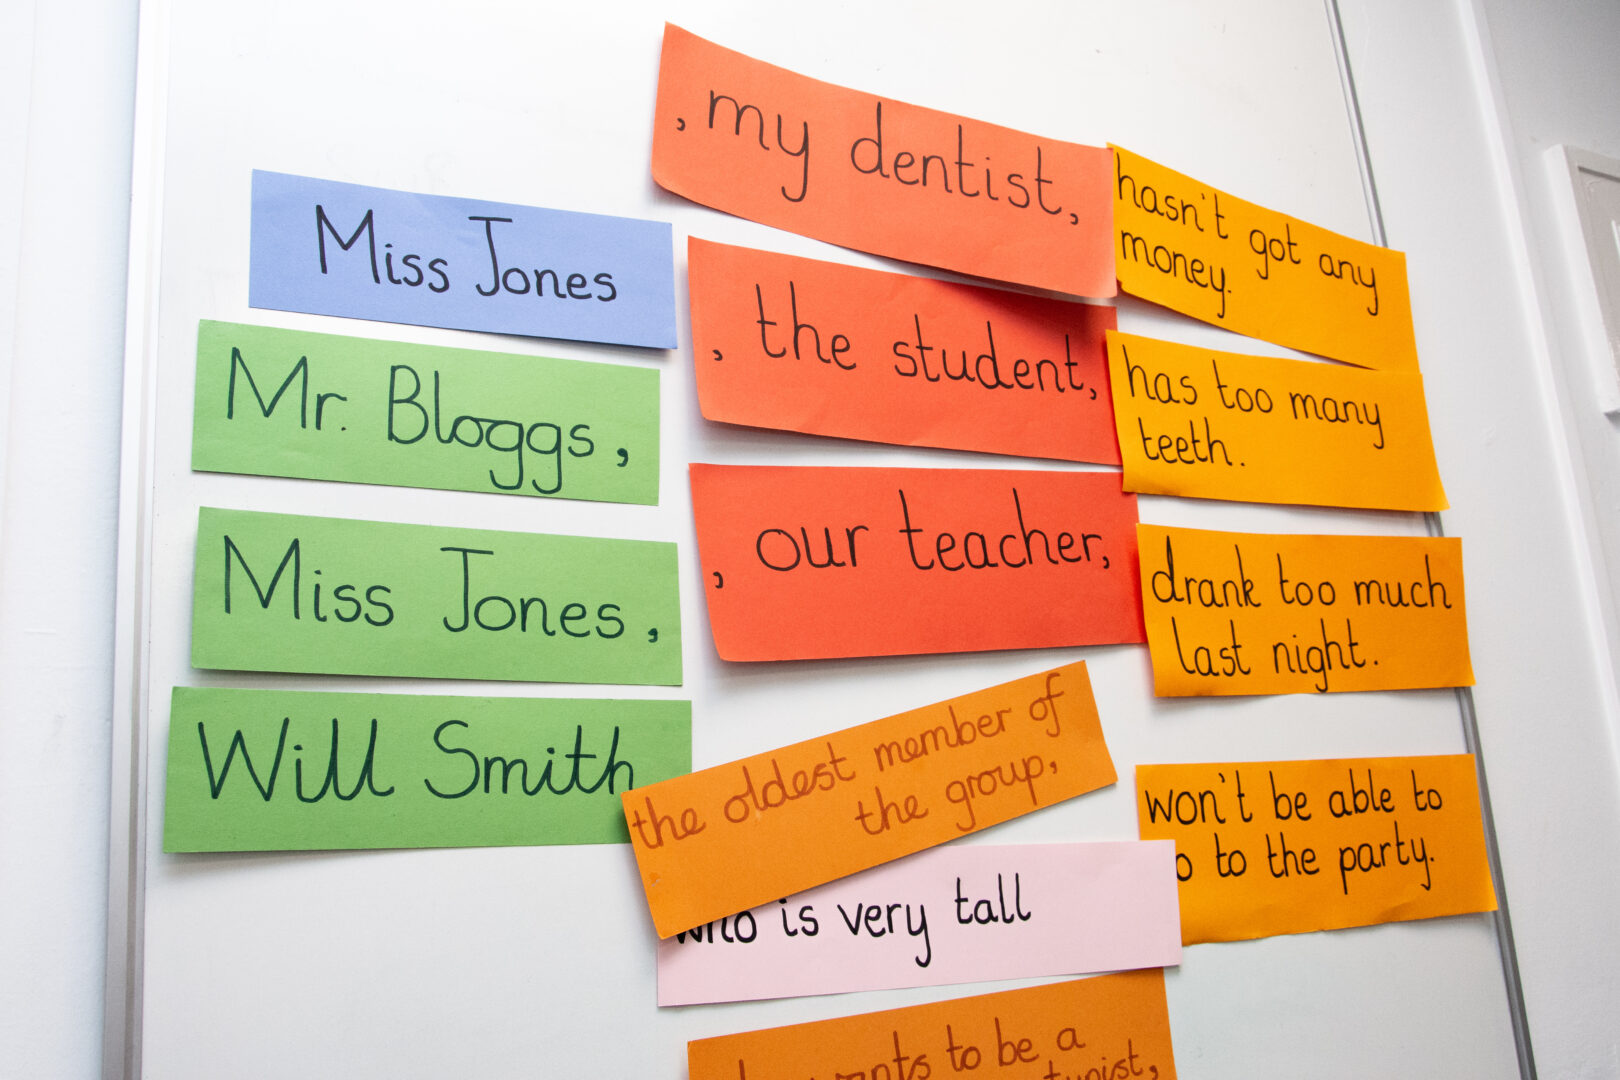 Miss Jones
Mr. Bloggs,
Miss Jones,
Will Smith
, my dentist,
, the student,
, our teacher,
the oldest member of
the group,
who is very tall
to be a
hasn't got any
money.
has too many
teeth.
drank too much
last night.
won't be able to
to the party.